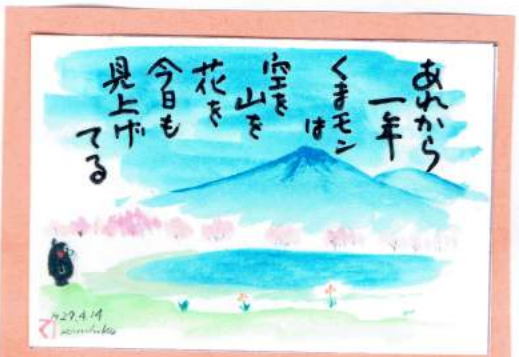 あれから
一年
くまモン
は
空を
山を
花を
今日も
見上げ
てる
H29.4.14